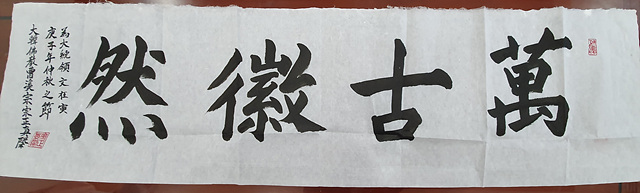 萬古徽然
為大統領文在寅
庚子年仲秋之節
大韓佛教曹溪宗宗正真際